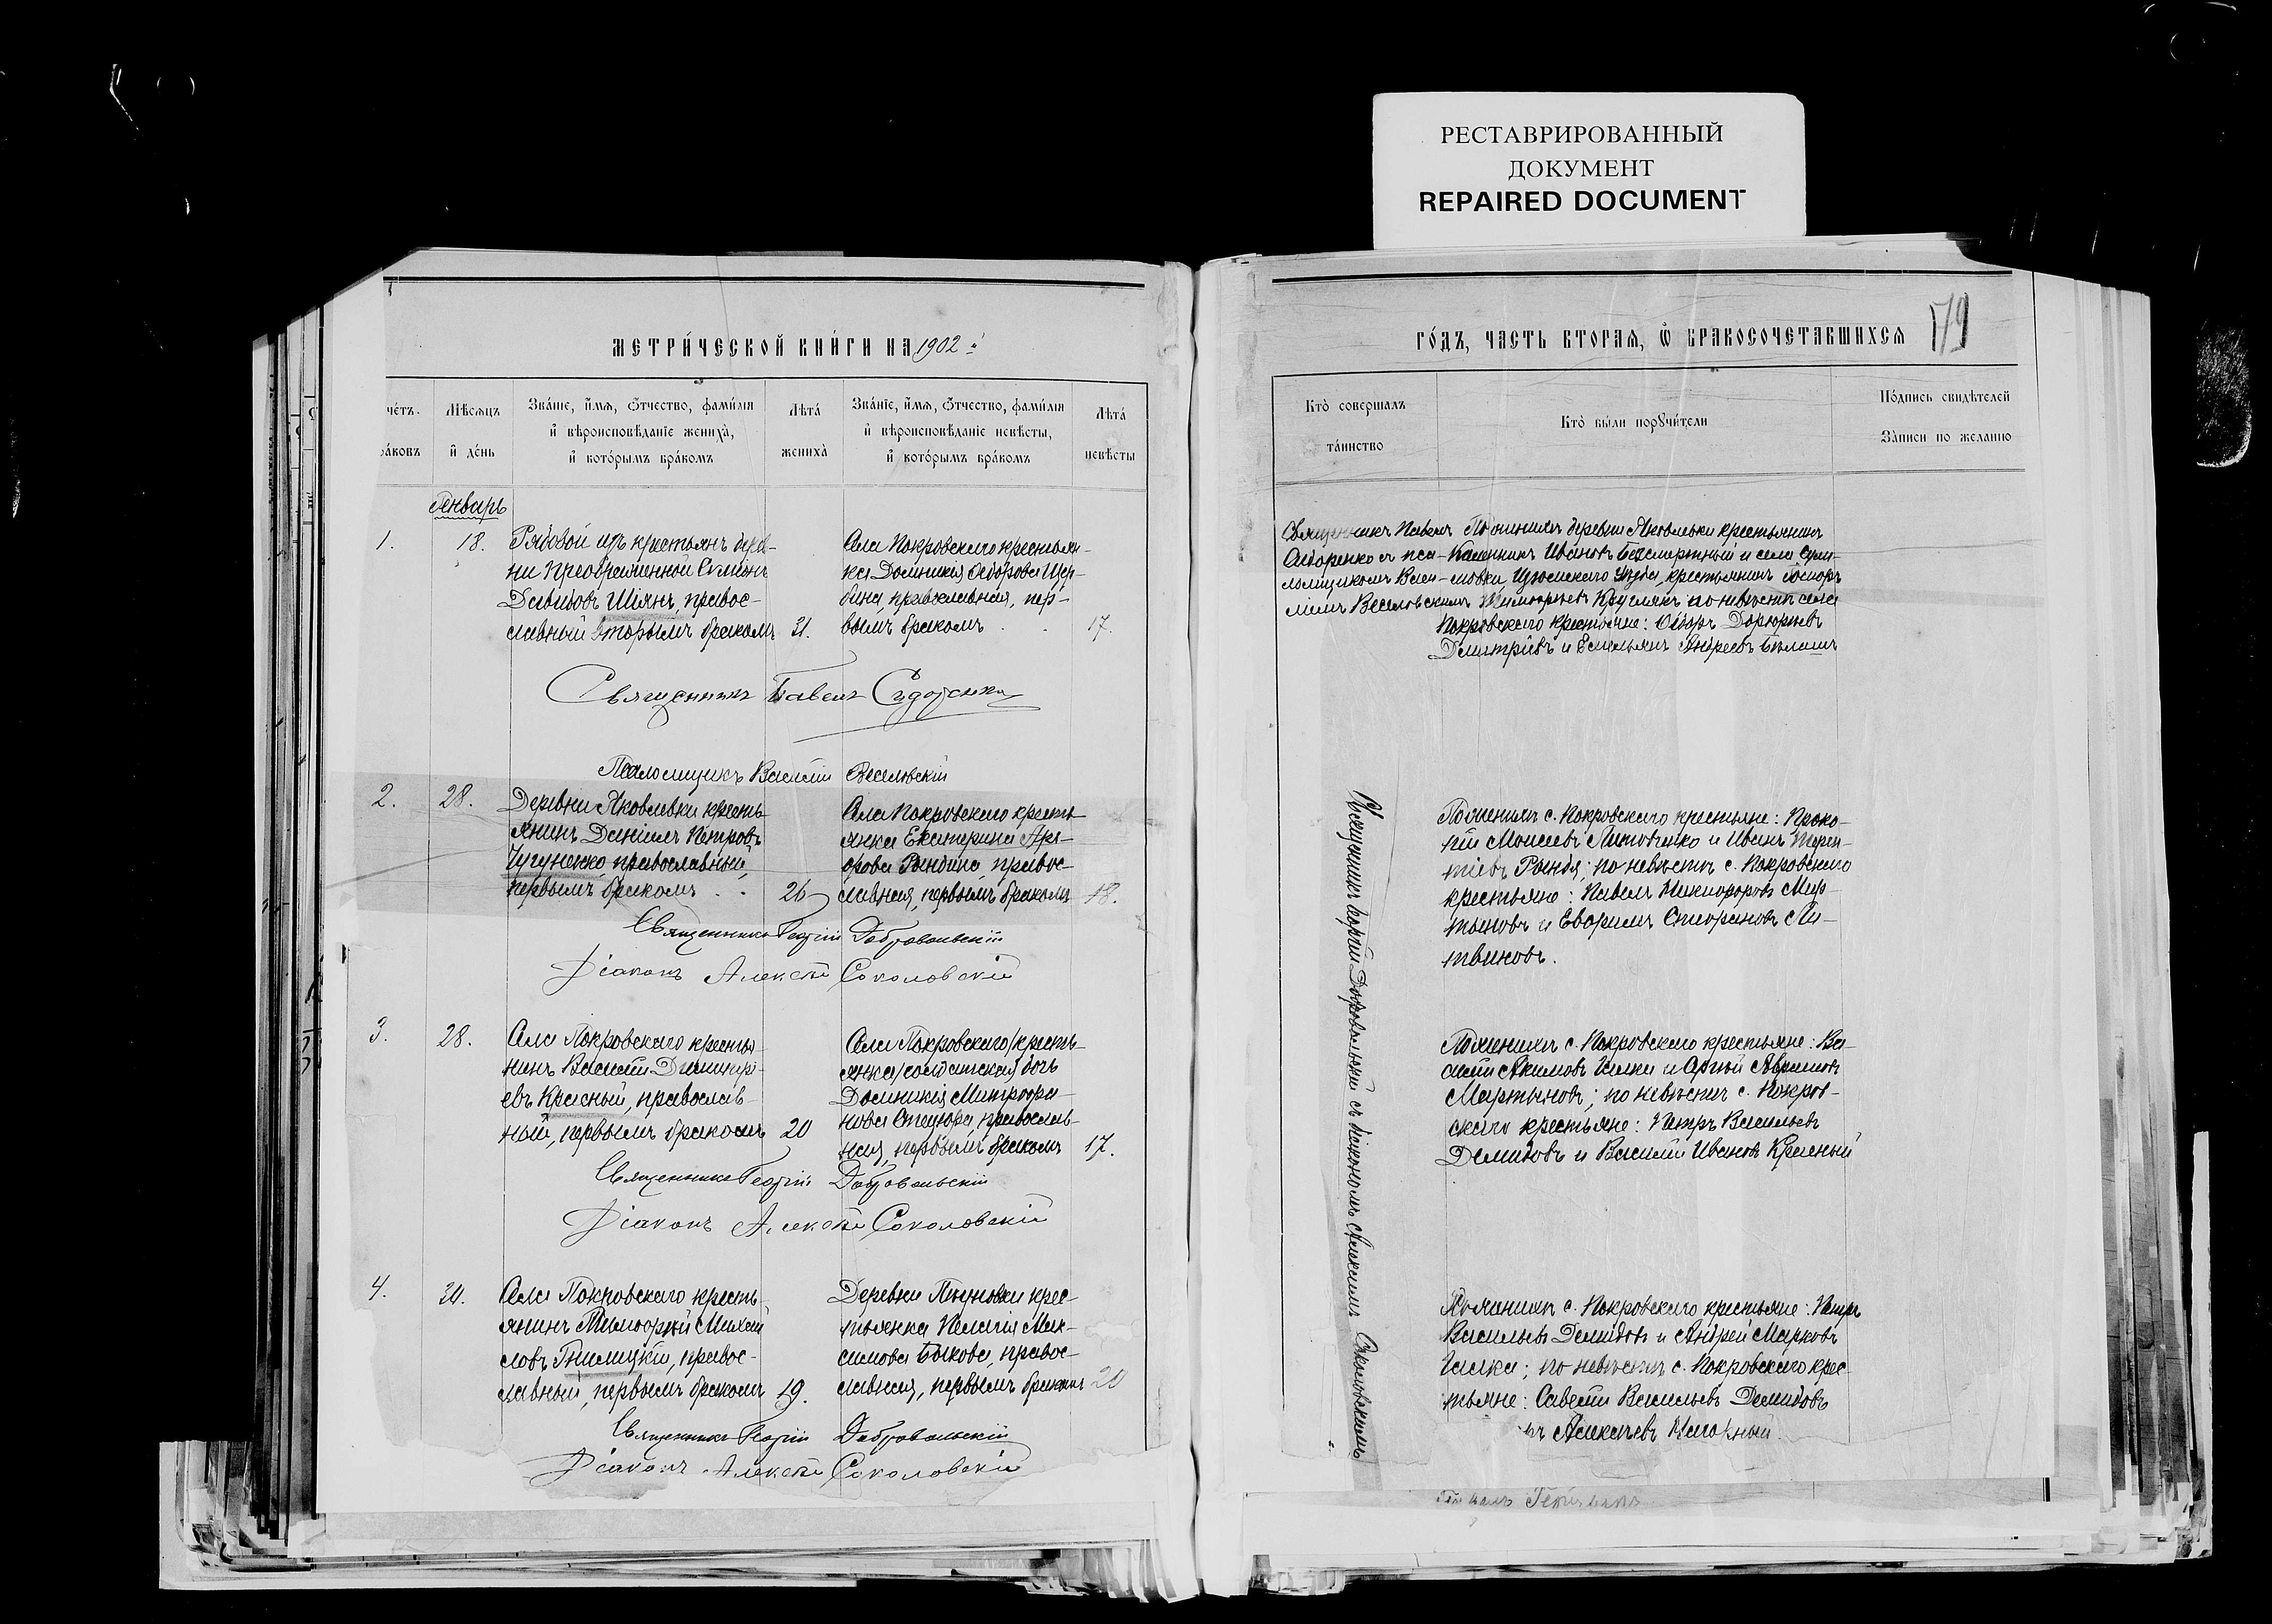 РЕСТАВРИРОВАННЫЙ
ДОКУМЕНТ
REPAIRED DOCUMENT
МЕТРИ́ЧЕСКОЙ КНИ́ГИ НА 1902 й
че́тъ
ра́ковъ
Мѣ́сяцъ
и҆ де́нь
Зва́нїе, и҆́мя, ѻ҆́тчество, фами́лїя
и҆ вѣроисповѣ́данїе жениха̀,
и҆ кото́рымъ бра́комъ
Лѣта́
жениха̀
Зва́нїе, и҆́мя, ѻ҆́тчество, фами́лїя
и҆ вѣроисповѣ́данїе невѣ́сты,
и҆ кото́рымъ бра́комъ
Лѣта́
невѣ́сты
Январь
1.
18.
Рядовой изъ крестьянъ дерев-
ни Преображенной Симеонъ
Давидовъ Шіянъ, правос-
славный вторымъ бракомъ
31.
Села Покровскаго крестьян-
ка Домникія Ѳедорова Щер-
бина, православная, пер-
вымъ бракомъ
17.
Священникъ Павелъ Сидоренко
Псаломщикъ Василій Веселовскій
2.
28.
Деревни Яковлевки кресть-
янинъ Даніилъ Петровъ
Чугуненко, православный,
первымъ бракомъ
26
Села Покровскаго кресть-
янка Екатерина
Рындина, правос-
славная, первымъ бракомъ
18.
Священникъ Георгій Добровольскій
Діаконъ Алексѣй Соколовскій
3.
28.
Села Покровскаго крестья-
нинъ Василій Димитрі-
евъ Красный, православ-
ный, первымъ бракомъ
20
Села Покровскаго кресть-
янка (солдатская) дочь
Домникія Митрофа-
нова православ-
ная, первымъ бракомъ
17.
Священникъ Георгій Добровольскій
Діаконъ Алексѣй Соколовскій
4.
Села Покровскаго кресть-
янинъ Тимофей Михай-
ловъ Гнилицкій, правос-
славный, первымъ бракомъ
19.
Деревни крес-
тьянка Пелагія Мак-
симова Быкова, правос-
славная, первымъ бракомъ
20
Священникъ Георгій Добровольскій
Діаконъ Алексѣй Соколовскій
ГО́ДЪ, ЧАСТЬ ВТОРАЯ, Ѡ҆ БРАКОСОЧЕТАВШИХСЯ
179
Кто̀ соверша́лъ
та́инство
Кто̀ бы́ли порꙋчи́тели
По́дпись свидѣ́телей
За́писи по жела́нїю
Священникъ Павелъ
Сидоренко съ пса-
ломщикомъ Васи-
ліемъ Веселовскимъ
По женихѣ деревни Яковлевки крестьянинъ
Калинникъ Ивановъ Безсмертный и села
Изюмскаго уѣзда, крестьянинъ
Тимофеевъ Кругликъ по невѣстѣ села
Покровскаго крестьяне: Ѳедоръ
Дмитріевъ и Емельянъ Андреевъ
Священникъ Георгій Добровольскій съ діакономъ Алексѣемъ Соколовскимъ
По женихѣ с. Покровскаго крестьяне: Проко-
пій Моисеевъ Литовченко и Иванъ Терен-
тіевъ Рында; по невѣстѣ с. Покровскаго
крестьяне: Павелъ Никифоровъ Мар-
тыновъ и Ефремъ Стефановъ Ли-
твиновъ.
По женихѣ с. Покровскаго крестьяне: Ва-
силій Акимовъ Галка и Аврамовъ
Мартыновъ; по невѣстѣ с. Покров-
скаго крестьяне: Петръ Васильевъ
Демидовъ и Василій Ивановъ Красный
По женихѣ с. Покровскаго крестьяне: Петръ
Васильевъ Демидовъ и Андрей Марковъ
Галка; по невѣстѣ с. Покровскаго крес-
тьяне: Савелій Васильевъ Демидовъ
Алексѣевъ Нагорный